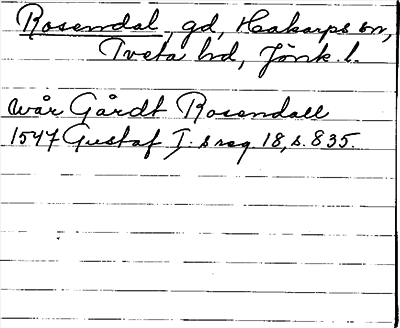 Rosendal, gd, Hakarps sn,
Tveta hd, Jönk. l.
wår Gårdt Rosendall
1547 Gustaf I. s reg. 18, s. 835.